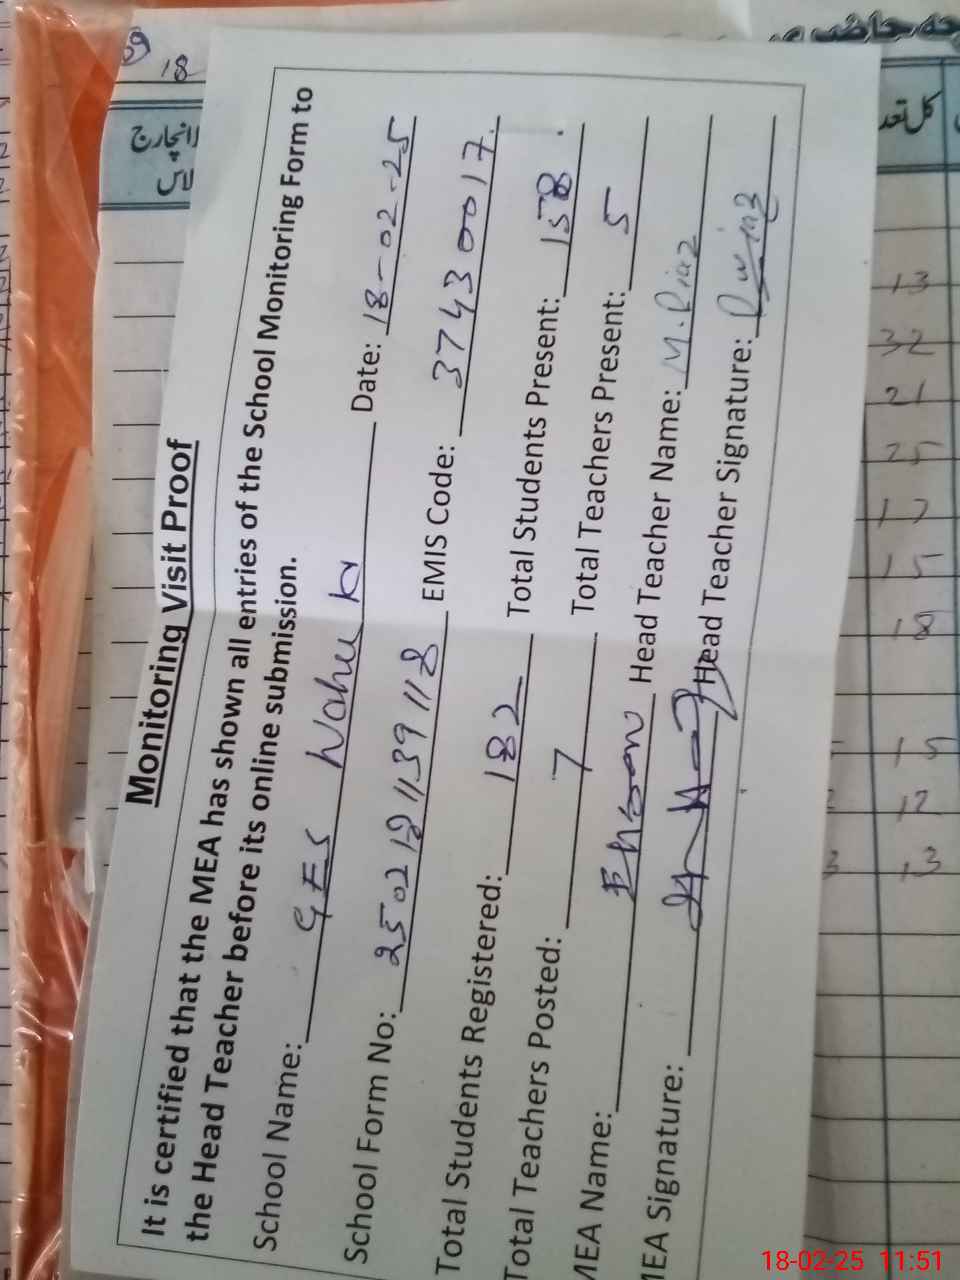 Monitoring Visit Proof
It is certified that the MEA has shown all entries of the School Monitoring Form to
the Head Teacher before its online submission.
School Name: GES Date: 18-02-25
School Form No: 2502181139118 EMIS Code: 37430017
Total Students Registered: 182 Total Students Present: 158
Total Teachers Posted: 7 Total Teachers Present: 5
MEA Name: Ehsan Head Teacher Name: M. Riaz
MEA Signature: Head Teacher Signature:
18
انچارج
کل تعد
13
32
21
25
17
15
18
15
12
13
18-02-25 11:51